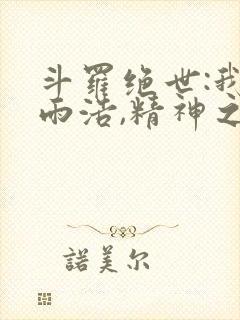 斗羅绝世:我
雨浩,精神之
諾美尔